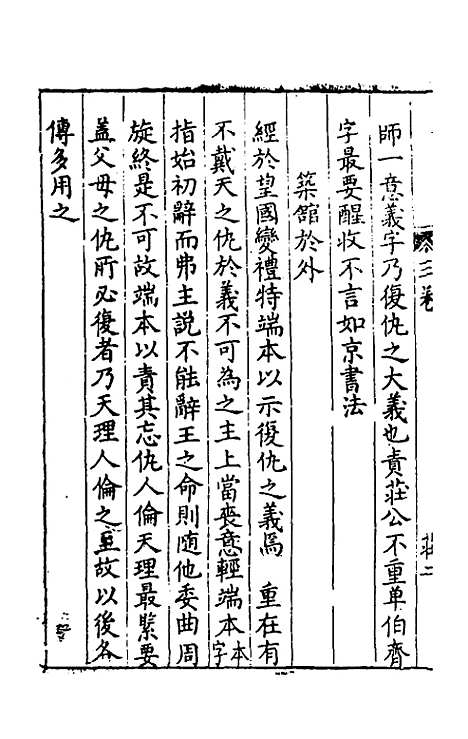 師一意義字乃復仇之大義也責莊公不重单伯齊
字最要醒收不言如京書法
築館於外
經於望國變禮特端本以示復仇之義焉　重在有
不戴天之仇於義不可為之主上當喪意輕端本本字
指始初辭而弗主說不能辭王之命則隨他委曲周
旋終是不可故端本以責其忘仇人倫天理最緊要
盖父母之仇所必復者乃天理人倫之重故以後各
傳多用之
三卷
莊二